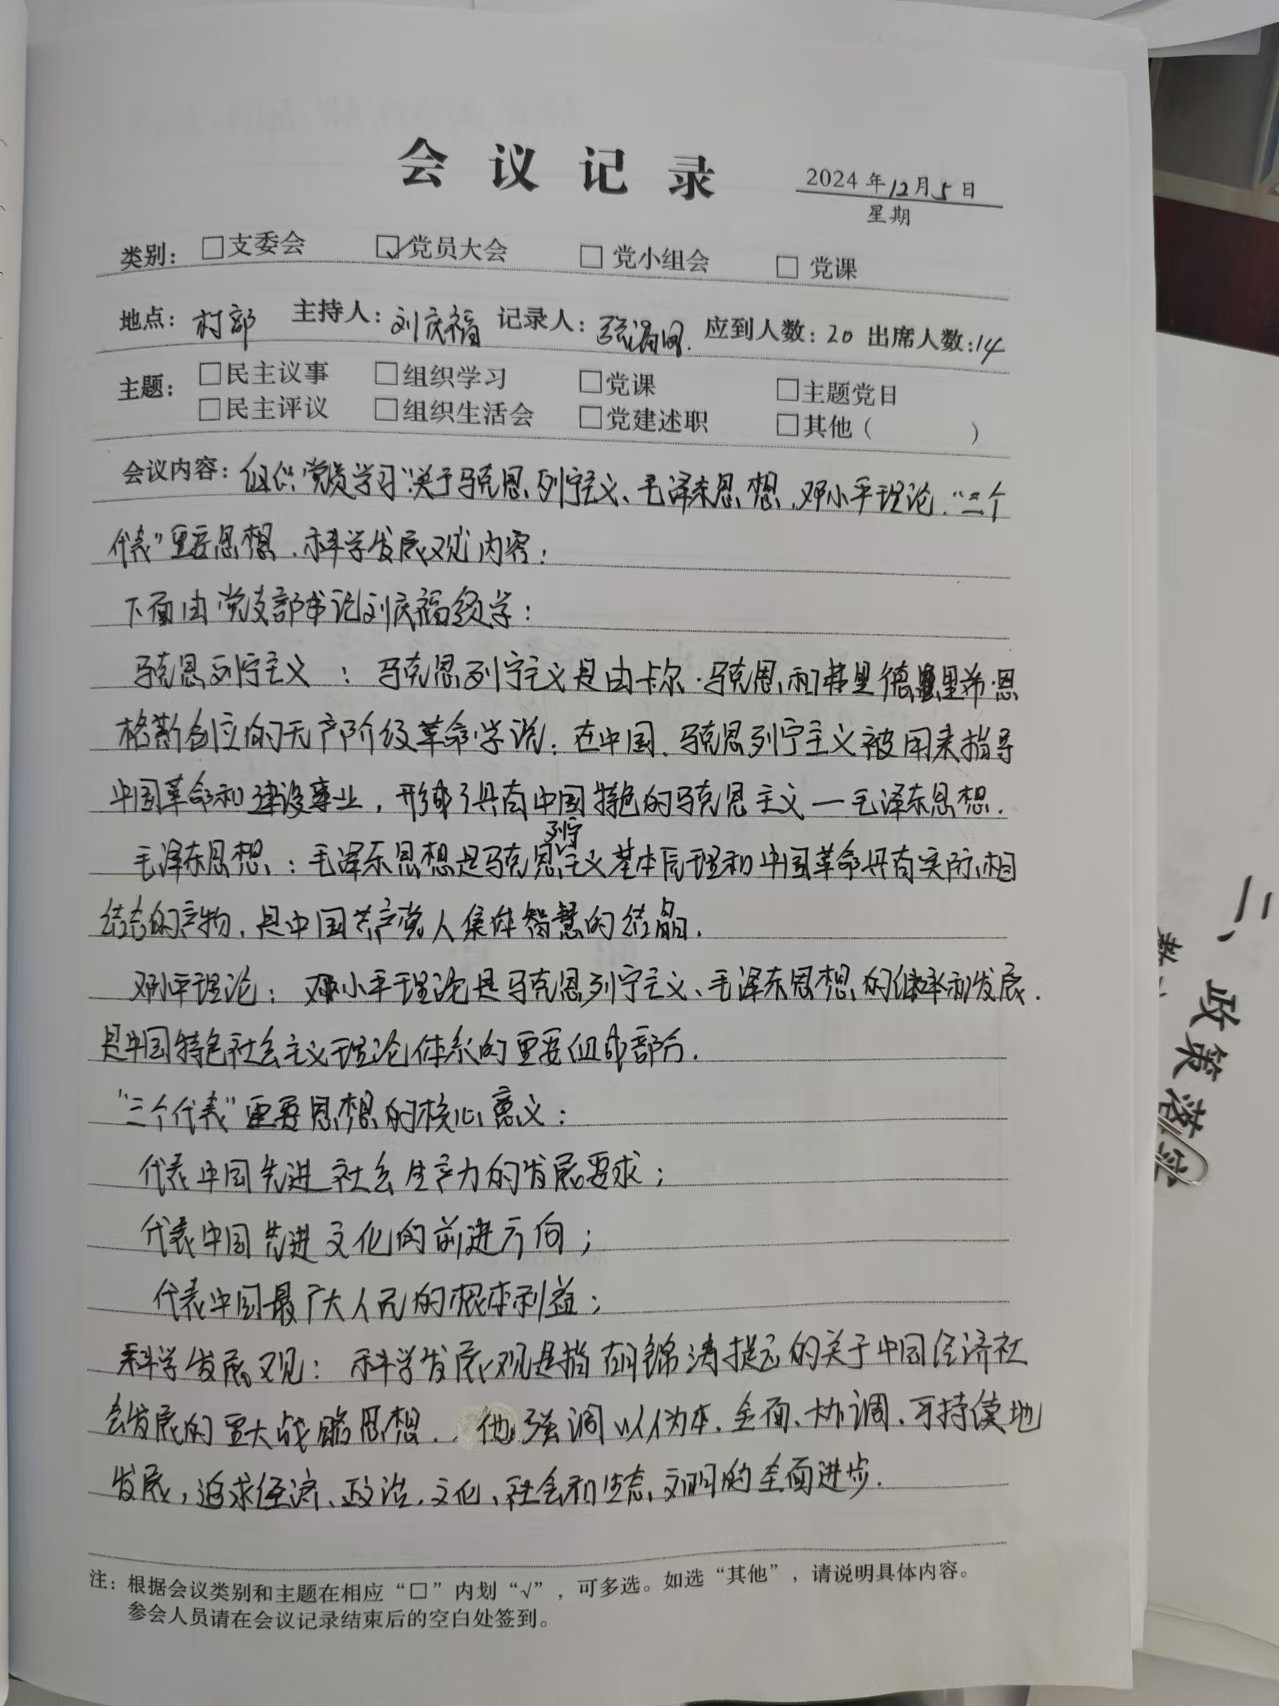 会议记录
2024年12月5日
星期
类别：□支委会 ☑党员大会 □党小组会 □党课
地点：村部 主持人：刘庆福 记录人： 应到人数：20 出席人数：14
主题：□民主议事 □组织学习 □党课 □主题党日
□民主评议 □组织生活会 □党建述职 □其他（ ）
会议内容：组织党员学习“关于马克思列宁主义、毛泽东思想、邓小平理论、“三个
代表”重要思想、科学发展观内容：
下面由党支部书记刘庆福领学：
马克思列宁主义：马克思列宁主义是由卡尔·马克思和弗里德里希·恩
格斯创立的无产阶级革命学说。在中国、马克思列宁主义被用来指导
中国革命和建设事业，形成了具有中国特色的马克思主义—毛泽东思想.
毛泽东思想：毛泽东思想是马克思列宁主义基本原理和中国革命具有实际相
结合的产物，是中国共产党人集体智慧的结晶.
邓小平理论：邓小平理论是马克思列宁主义、毛泽东思想的继承和发展.
是中国特色社会主义理论体系的重要组成部分.
“三个代表”重要思想的核心意义：
代表中国先进社会生产力的发展要求；
代表中国先进文化的前进方向；
代表中国最广大人民的根本利益；
科学发展观：科学发展观是指胡锦涛提出的关于中国经济社
会发展的重大战略思想. 他强调以人为本、全面、协调、可持续地
发展，追求经济、政治、文化、社会和生态文明的全面进步.
注：根据会议类别和主题在相应“□”内划“√”，可多选。如选“其他”，请说明具体内容。
参会人员请在会议记录结束后的空白处签到。
二、政策落实